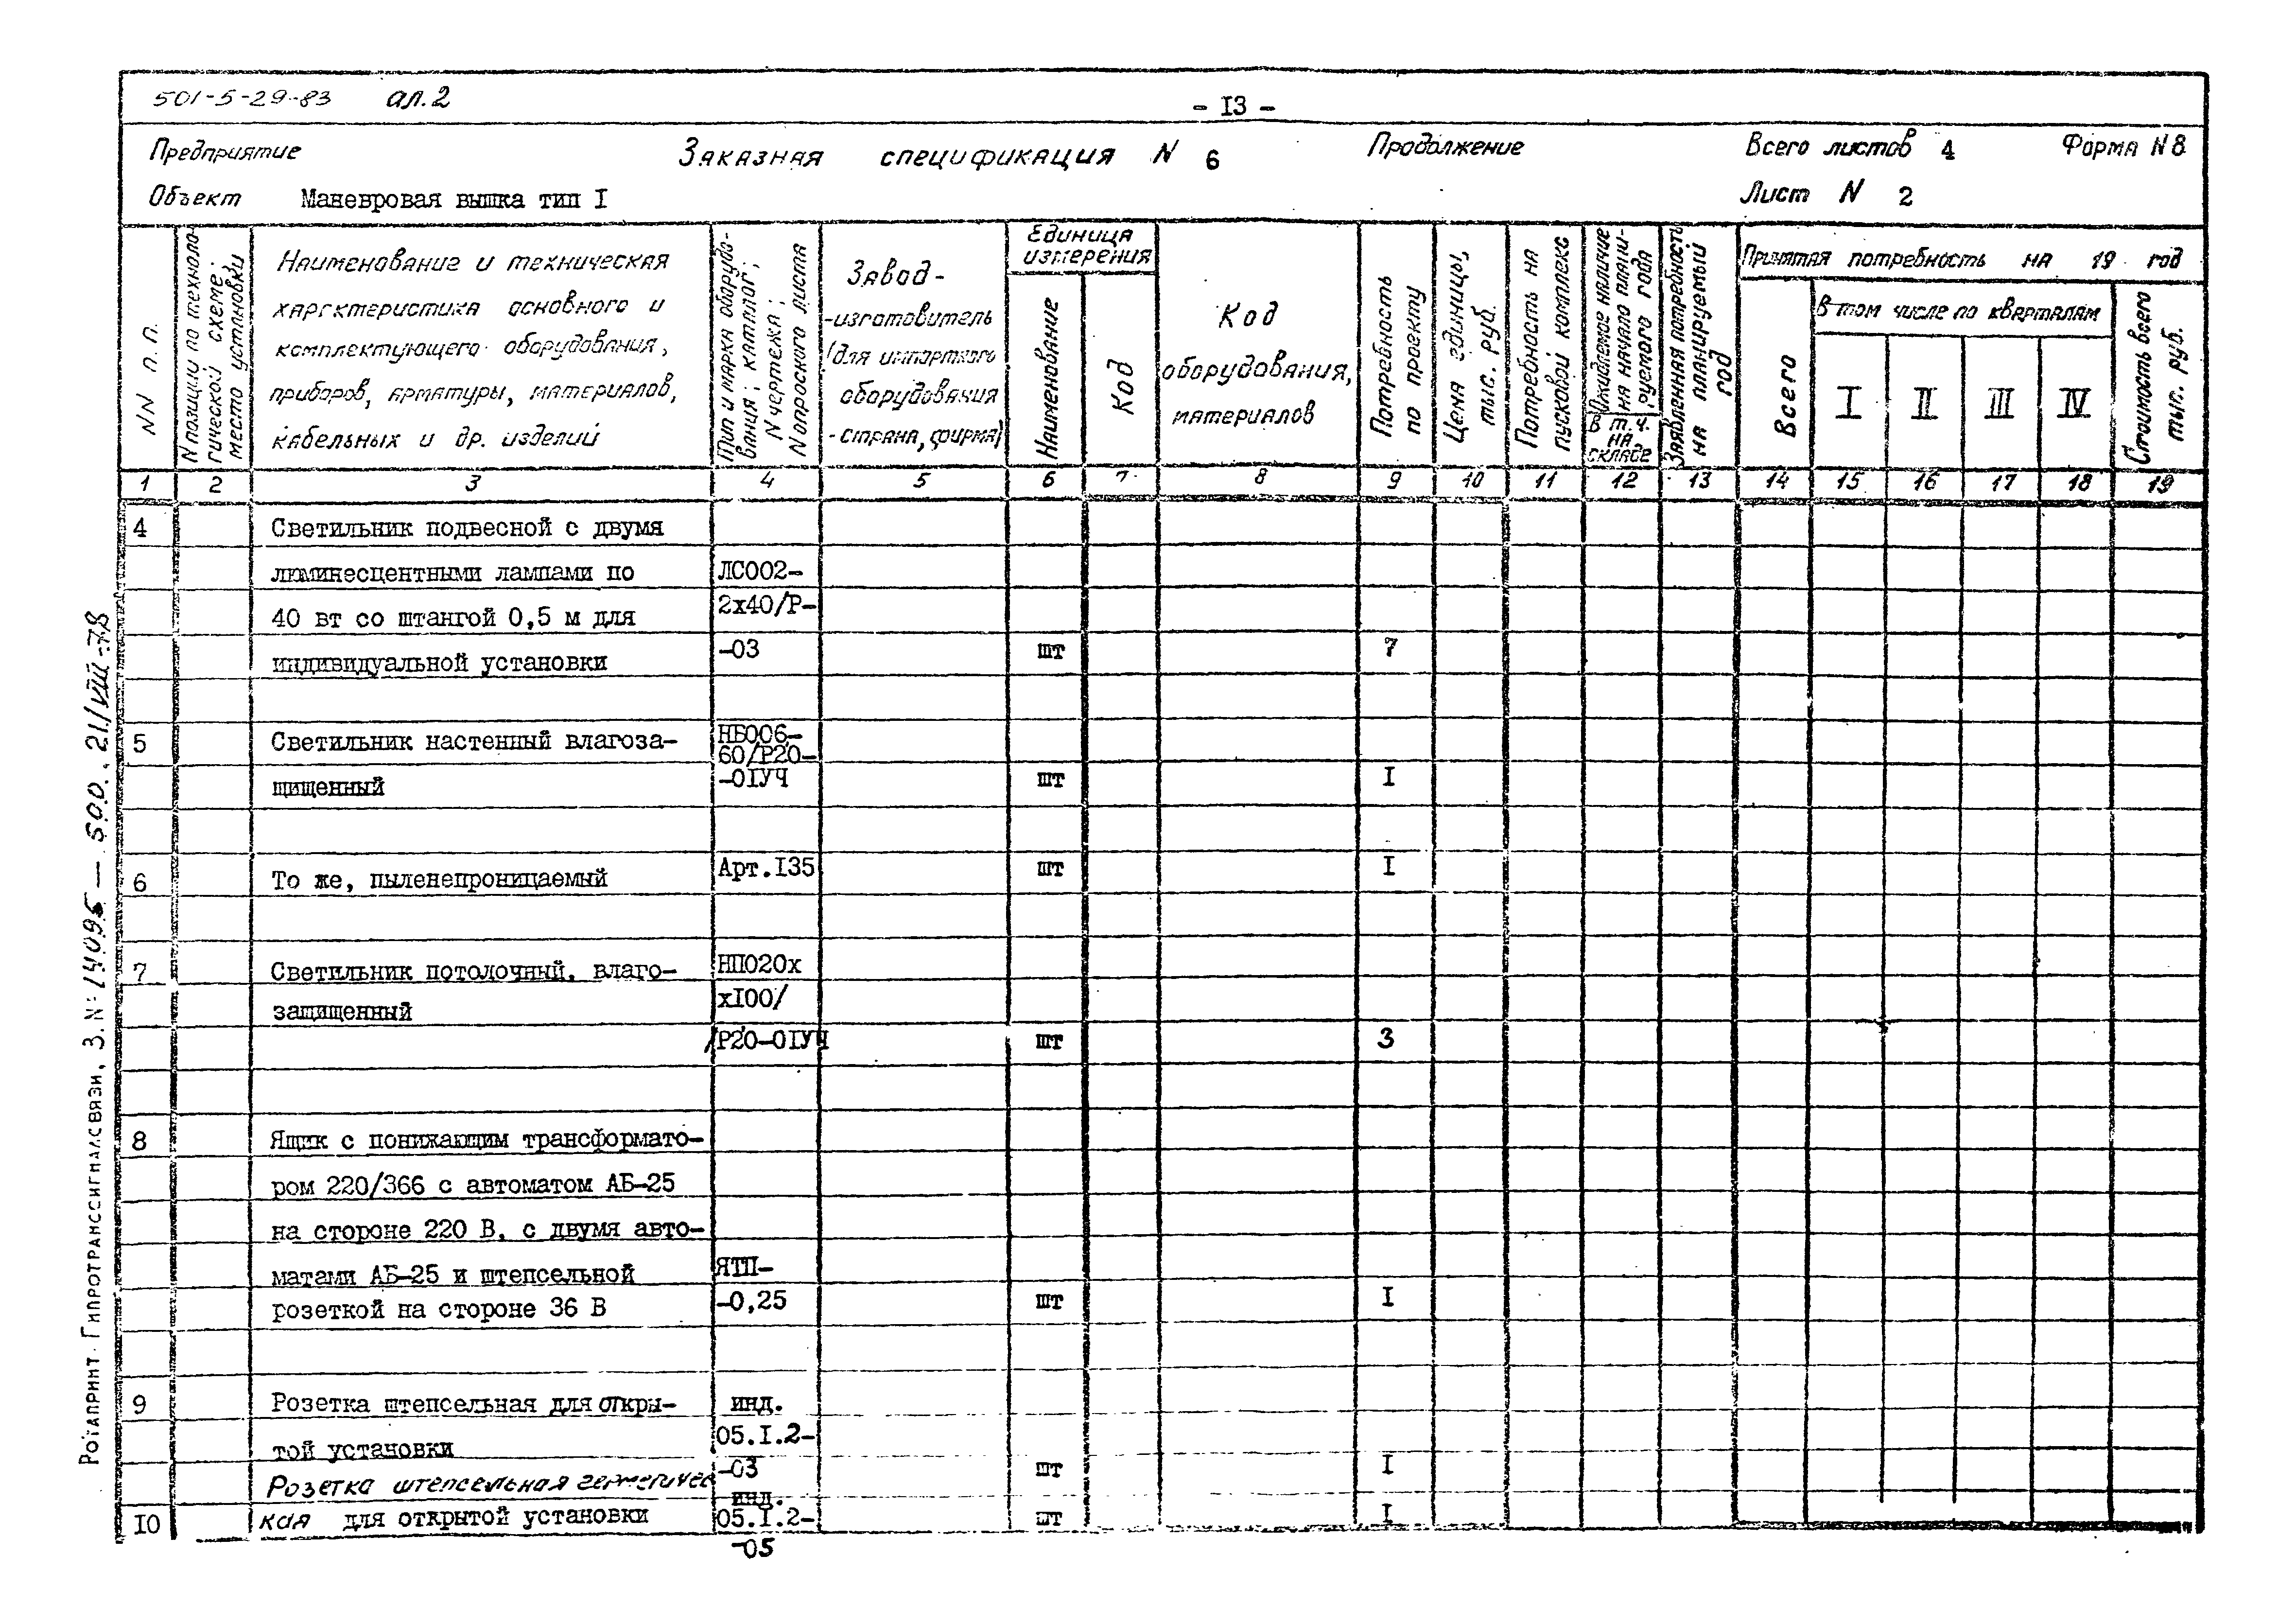 501-5-29-83 ал.2
- I3 -
Предприятие Заказная спецификация N 6 Продолжение Всего листов 4 Форма N8
Объект Маневровая вышка тип I Лист N 2
NN п.п.
N позиции по техноло-
гической схеме;
место установки
Наименование и техническая
характеристика основного и
комплектующего оборудования,
приборов, арматуры, материалов,
кабельных и др. изделий
Тип и марка оборудо-
вания; каталог;
N чертежа;
N опросного листа
Завод-
-изготовитель
(для импортного
оборудования
-страна, фирма)
Единица
измерения
Наименование
Код
Код
оборудования,
материалов
Потребность
по проекту
Цена единицы,
тыс. руб.
Потребность на
пусковой комплекс
Ожидаемое наличие
на начало плани-
руемого года
В т.ч.
на
складе
Заявленная потребность
на планируемый
год
Принятая потребность на 19 год
Всего
В том числе по кварталам
I II III IV
Стоимость всего
тыс. руб.
1 2 3 4 5 6 7 8 9 10 11 12 13 14 15 16 17 18 19
4 Светильник подвесной с двумя
люминесцентными лампами по ЛС002-
40 вт со штангой 0,5 м для 2х40/Р-
индивидуальной установки -03 шт 7
5 Светильник настенный влагоза- НБ006-
60/Р20-
щищенный -0IУЧ шт I
6 То же, пыленепроницаемый Арт.I35 шт I
7 Светильник потолочный, влаго- НП020х
защищенный хI00/
/Р20-0IУЧ шт 3
8 Ящик с понижающим трансформато-
ром 220/366 с автоматом АБ-25
на стороне 220 В, с двумя авто-
матами АБ-25 и штепсельной ЯТП-
розеткой на стороне 36 В -0,25 шт I
9 Розетка штепсельная для откры- инд.
05.I.2-
той установки -03 шт I
Розетка штепсельная герметичес
инд.
I0 кая для открытой установки 05.I.2- шт I
-05
Ротапринт. Гипротранссигналсвязи, З.N° 14095 — 500, 21/VIII-78